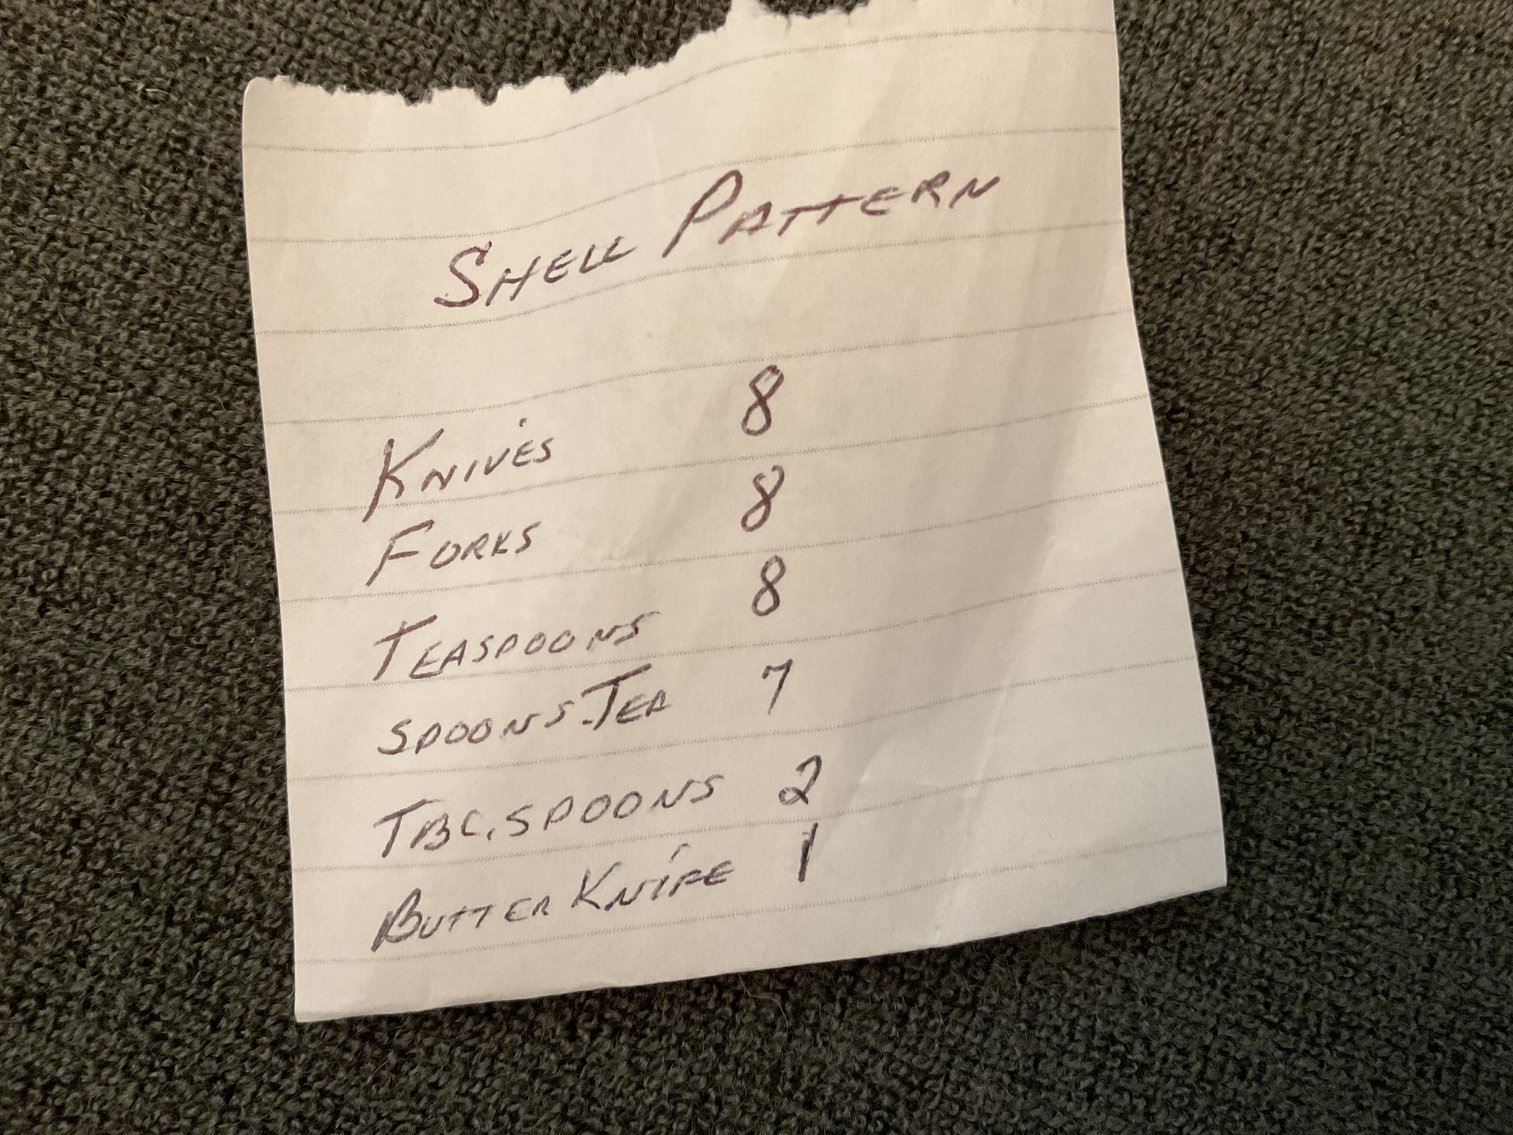 SHELL PATTERN
KNIVES 8
FORKS 8
TEASPOONS 8
SPOONS-TEA 7
TBC.SPOONS 2
BUTTER KNIFE 1